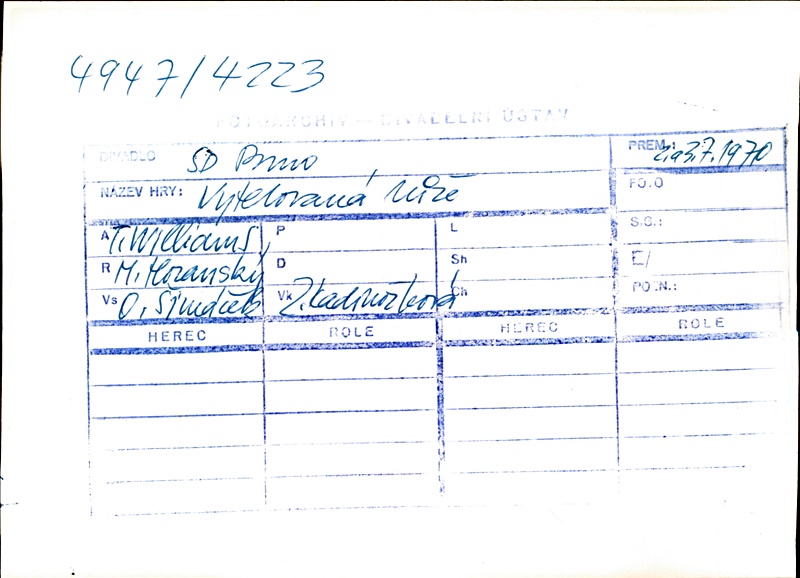 4947/4223
FOTOARCHIV — DIVADELNÍ ÚSTAV
DIVADLO SD Brno PREM.: 2. a 3.7.1970
NÁZEV HRY: Vytetovaná růže FOTO
A T. Williams P L S.G.:
R M. Moravský D Sh E/
Vs O. Šimáček Vk Z. Kadrnožková Ch POZN.:
HEREC ROLE HEREC ROLE